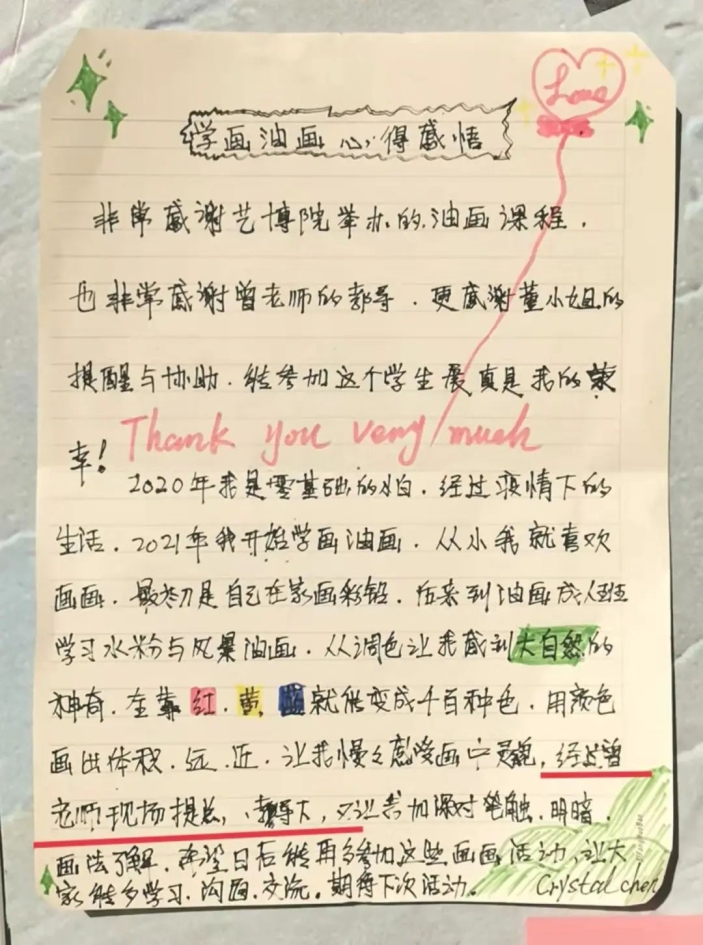 Love
学画油画心得感悟
非常感谢艺博院举办的油画课程.
也非常感谢曾老师的教导.更感谢董小姐的
提醒与协助.能参加这个学生展真是我的荣
幸!
Thank you very much
2020年我是零基础的小白.经过疫情下的
生活.2021年我开始学画油画.从小我就喜欢
画画.最初是自己在家画彩铅.后来到油画成人班
学习水粉与风景油画.从调色让我感到大自然的
神奇.全靠红.黄.蓝就能变成千百种色.用颜色
画出体积.远.近.让我慢々感受画中灵魂,经过曾
老师现场提点,教导下,又让我加深对笔触.明暗.
画法了解.希望日后能再多参加这些画画活动,让大
家能多学习.沟通.交流.期待下次活动.
Crystal chen